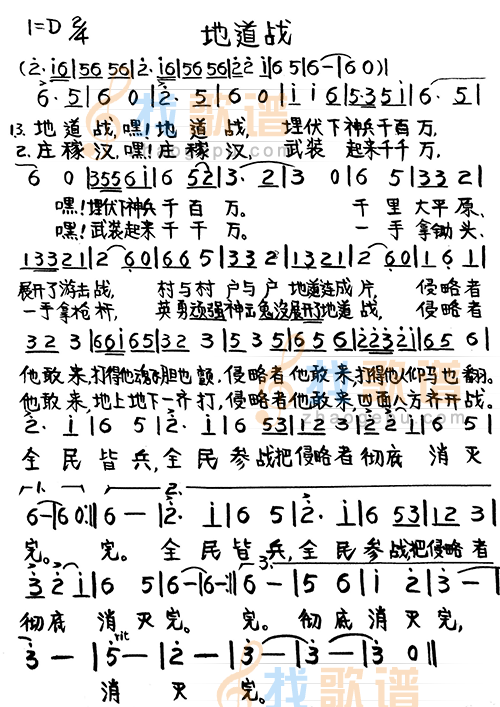 1=D 2/4 地道战
(2· i6|56 56|2· i6|56 56|2 2 i|6 5|6-|6 0)|
6· 5|6 0|2· 5|6 0|i i 6|5·35 i|6· 5|
13. 地道战,嘿!地道战, 埋伏下神兵千百万,
2. 庄稼汉,嘿!庄稼汉, 武装起来千千万,
6 0|3556i|6 52|3· 2|3 0|6 5|332|
嘿!埋伏下神兵千百万。 千里大平原、
嘿!武装起来千千万。 一手拿锄头、
展开了游击战, 村与村户与户地道连成片, 侵略者
一手拿枪杆, 英勇顽强神出鬼没展开了地道战, 侵略者
他敢来,打得他魂飞胆也颤,侵略者他敢来,打得他人仰马也翻。
他敢来,地上地下一齐打,侵略者他敢来,四面八方齐开战。
2· i|6 5|2· i|6 53|12 3|22i|6 5|
全民皆兵,全民参战把侵略者彻底消灭
1. 2.
6-|6 0:||6-|2· i|6 5|2· i|6 53|12 3|
完。 完。 全民皆兵,全民参战,把侵略者
3.
3 2 i|6 5|6-|6-:||6-|5 6|i 2|3-|
彻底消灭完。 完。彻底消灭完,
rit
3-|5-|2-|3-|3-|3 0||
消灭完。
找歌谱